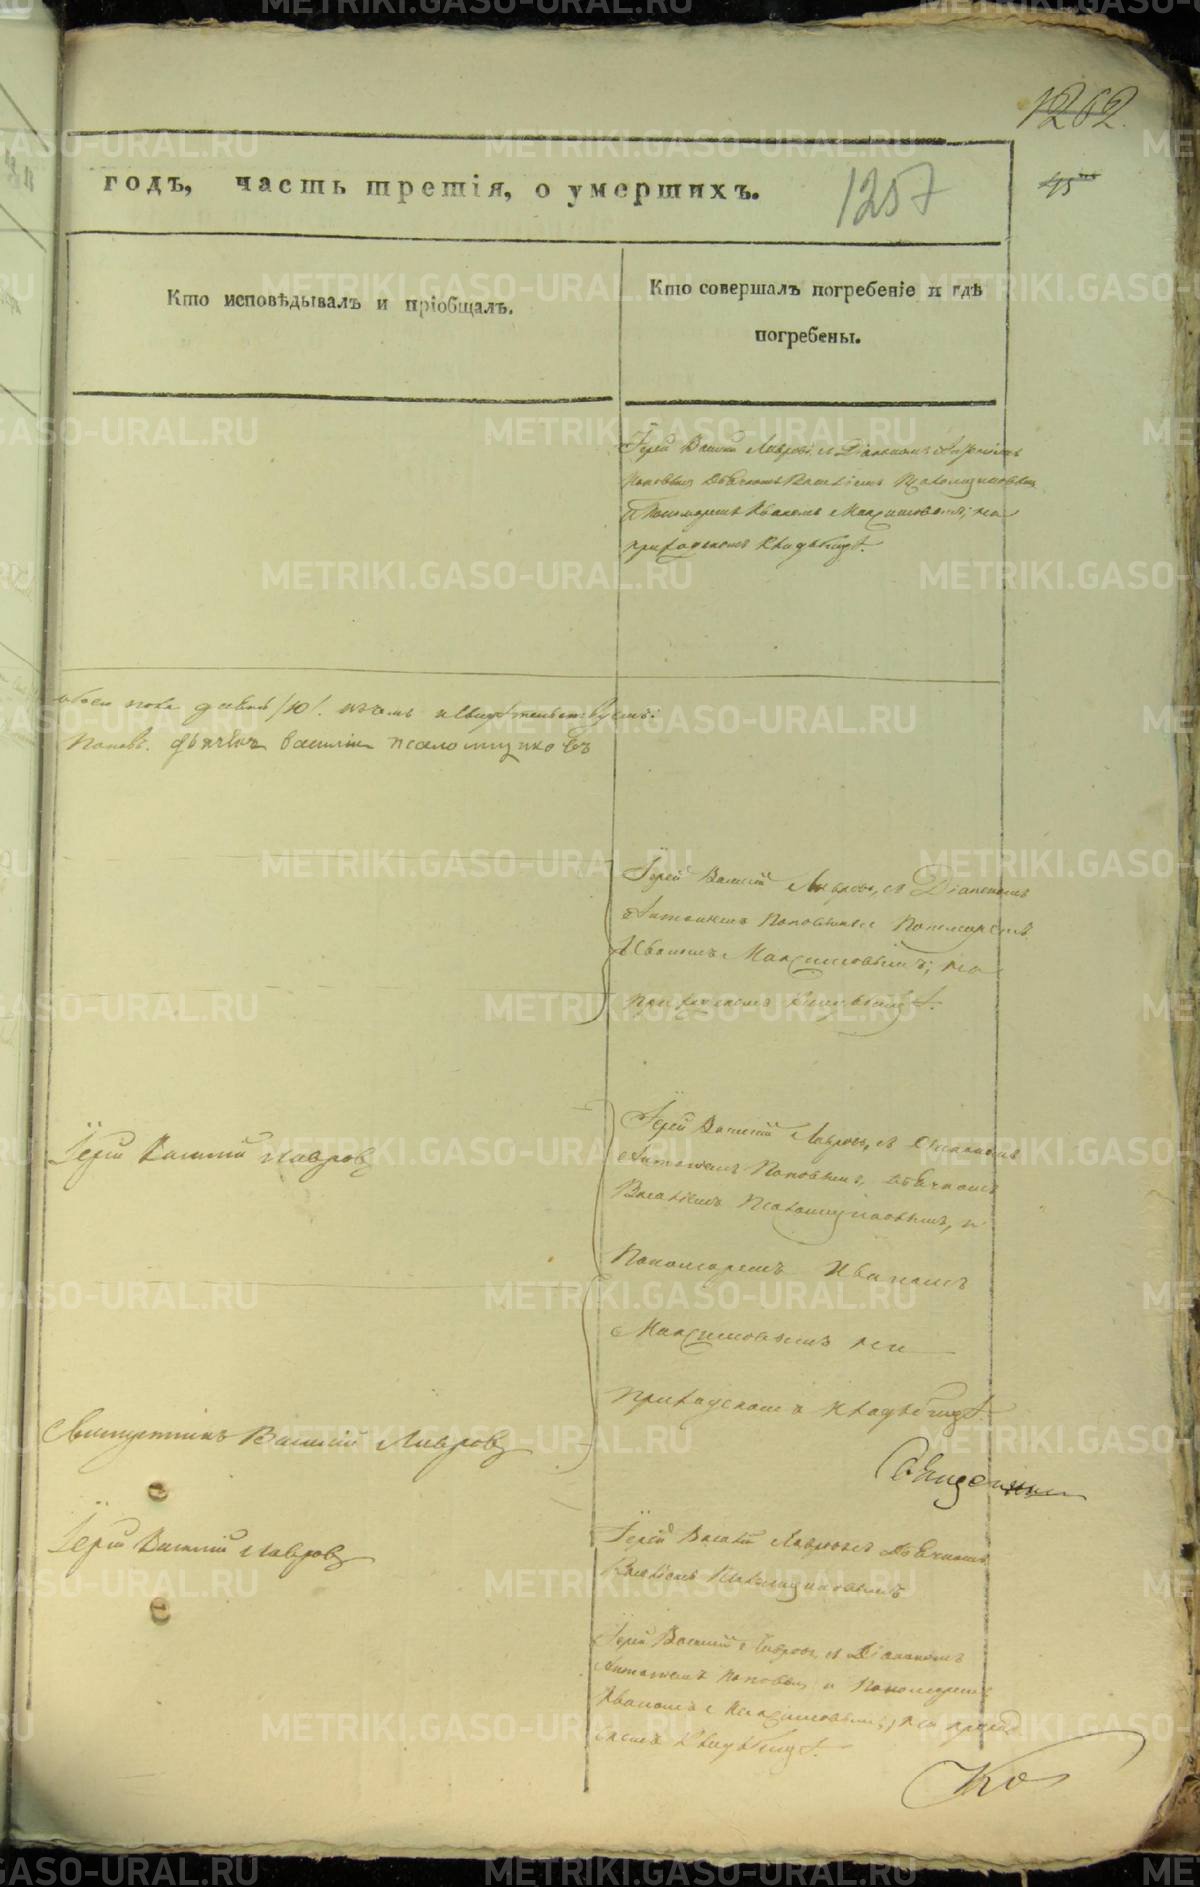 1262.
годъ, часть третія, о умершихъ.
1257
45
Кто исповѣдывалъ и пріобщалъ.
Кто совершалъ погребеніе и гдѣ
погребены.
Іерей Василій Лавровъ, съ Діакономъ Антоніемъ
Поповымъ Дьячкомъ Василіемъ Псаломщиковымъ
и Пономаремъ Иваномъ Максимовымъ; на
приходскомъ кладбищѣ.
свидѣтельствуемъ:
Поповъ. дьячекъ василии псаломщиковъ
Іерей Василій Лавровъ, съ Діакономъ
Антоніемъ Поповымъ и Пономаремъ
Иваномъ Максимовымъ; на
приходскомъ кладбищѣ.
Іерей Василій Лавровъ
Іерей Василій Лавровъ, съ Діакономъ
Антоніемъ Поповымъ, Дьячкомъ
Василіемъ Псаломщиковымъ, и
Пономаремъ Иваномъ
Максимовымъ на
Приходскомъ кладбищѣ.
Священникъ Василій Лавровъ
Іерей Василій Лавровъ
Іерей Василій Лавровъ съ Дьячкомъ
Василіемъ Псаломщиковымъ
Іерей Василій Лавровъ, съ Діакономъ
Антоніемъ Поповымъ и Пономаремъ
Иваномъ Максимовымъ; на приход
скомъ кладбищѣ.
METRIKI.GASO-URAL.RU